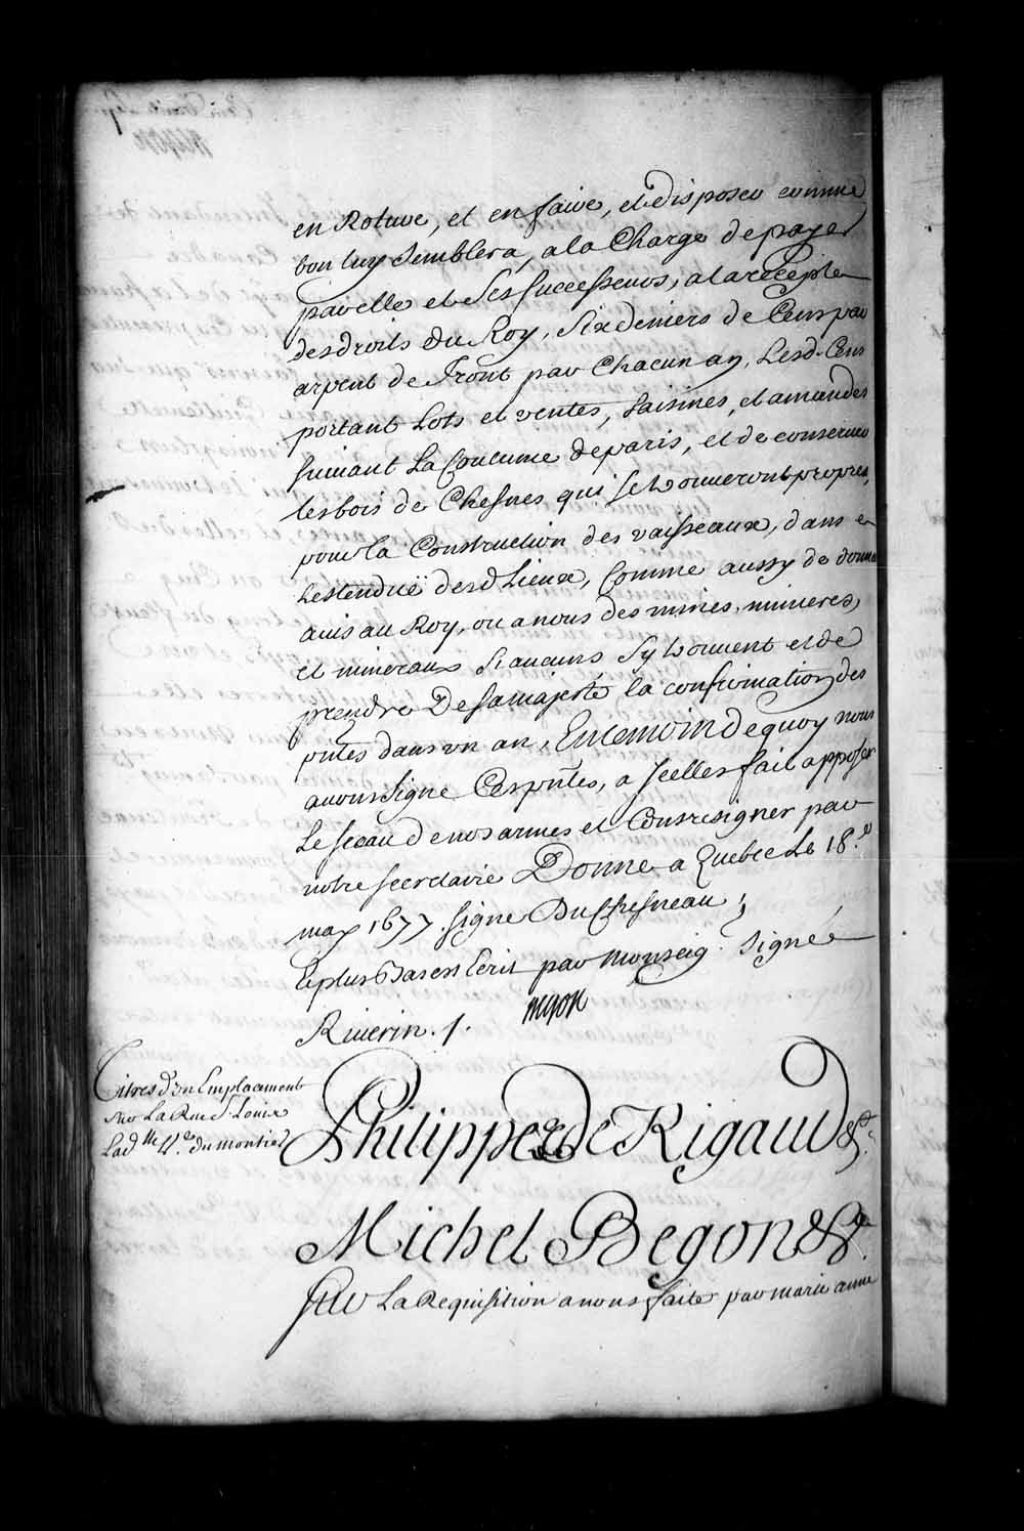 en Roture, et en faire, et disposer comme
bon luy semblera, ala Charge depayer
parelle et Ses Successeurs, a larecepte
desdroits du Roy, Six deniers de Cens par
arpent de Front par Chacun an, Lesd. Cens
portant Lots et ventes, Saisines, et amandes
suivant La Coutume deparis, et de conserver
les bois de Chesnes qui se trouveront propres,
pour la Construction des vaisseaux, dans
Lestenduë desd Lieux, Comme aussy de donner
avis au Roy, ou a nous des mines, minieres,
et mineraux Si aucuns Sy trouvent et de
prendre De Samajesté la confirmation des
pntes dans vn an, Entemoin dequoy nous
avons Signé Ces pntes, a Jcelles fait apposer
Le Sceau denos armes et Contresigner par
notre Secretaire Donné a Quebec Le 18.e
may 1677. Signé DuChesneau,
Et plus Bas est Ecrit par Monseig.r Signé
Riverin. /.
Begon
Titres d'vn Emplacement
sur La Rue St. Louis
a Lad. lle V.e du montier
Philippe de Rigaud &c.
Michel Begon &c.
Sur La Requisition anous faite par marie anne